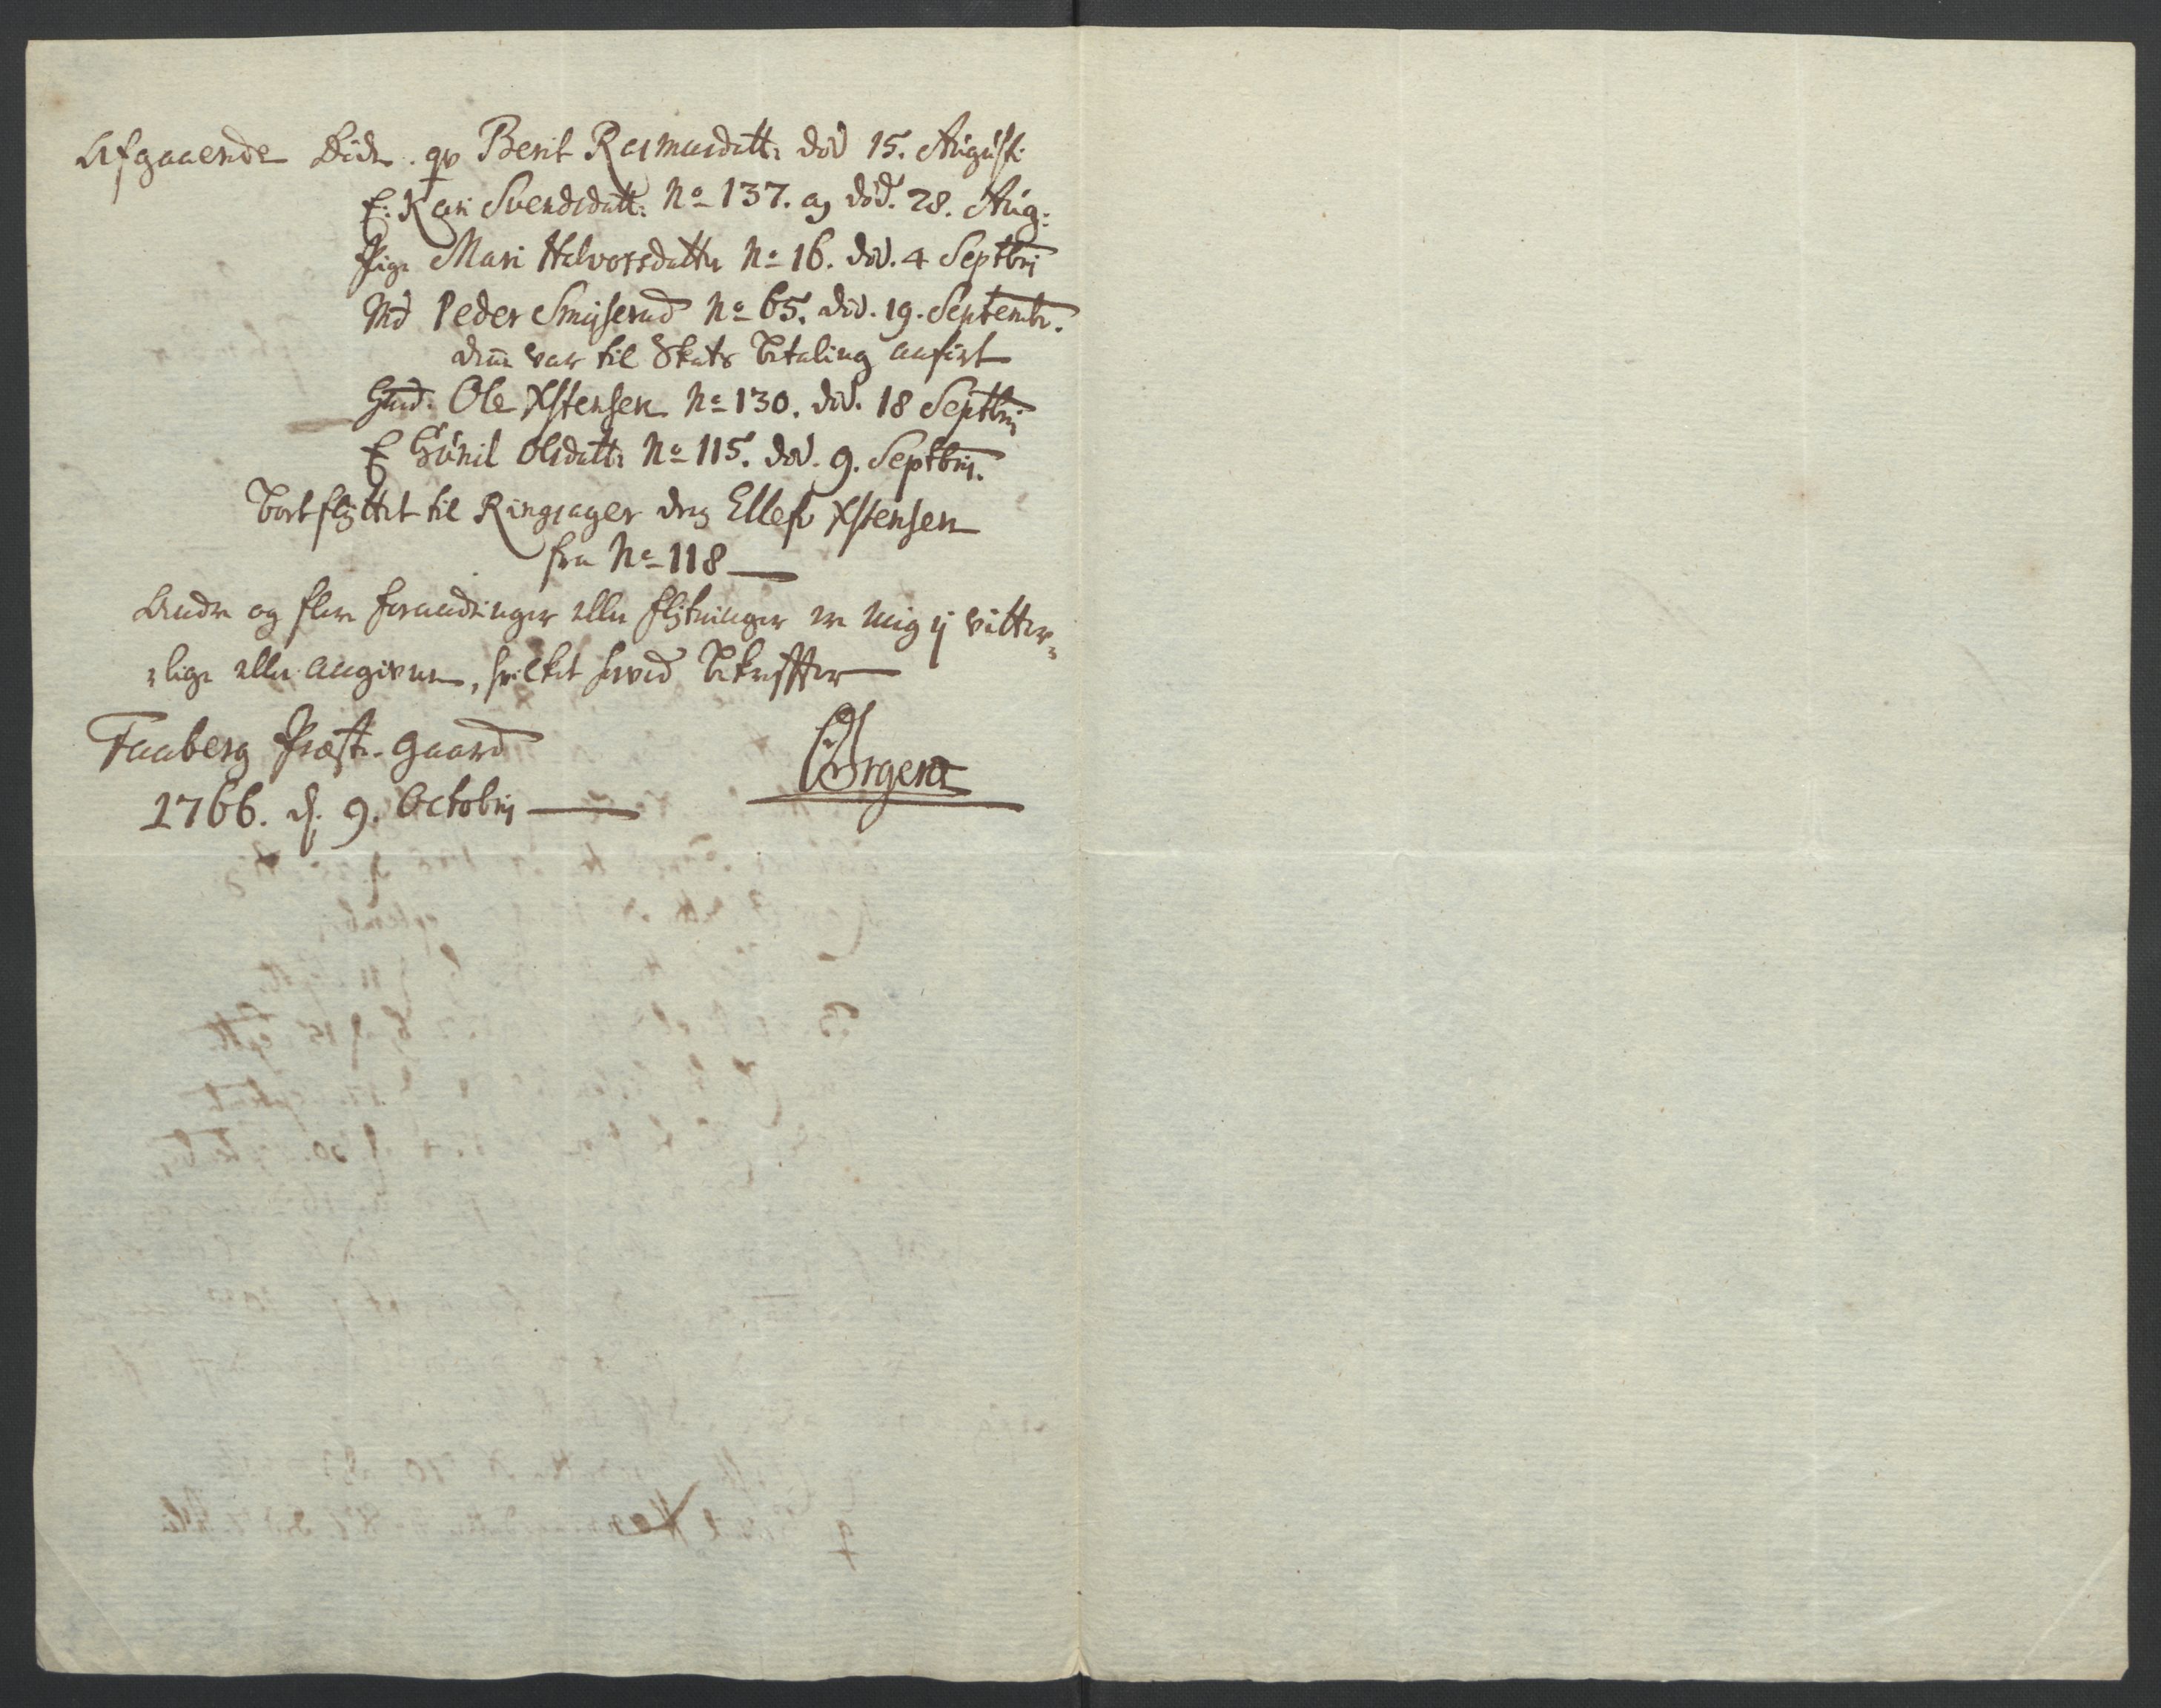 Afgaaende Døde. qv Berit Rasmusdatt: død 15. Augusti
E: Kari Svendsdatt: No 137. og død. 28. Aug:
Pige Mari Halvorsdatter No 16. død. 4 Septbrj
Md Peder Smijserud No 65. død. 19. Septembr.
denne var til Skats Betaling anført
Gmd: Ole Xstensen No 130. død. 18 Septbrj
E Gunil Olsdatt: No 115. død. 9. Septbrj.
Bortflyttet til Ringsager dreng Ellef Xstensen
fra No 118
Andre og flere forandringer eller flytninger er mig ej vitter-
-lige eller angivne, hvilket herved Bekræffter
Faaberg Præste-gaard
1766. d. 9. Octobrj